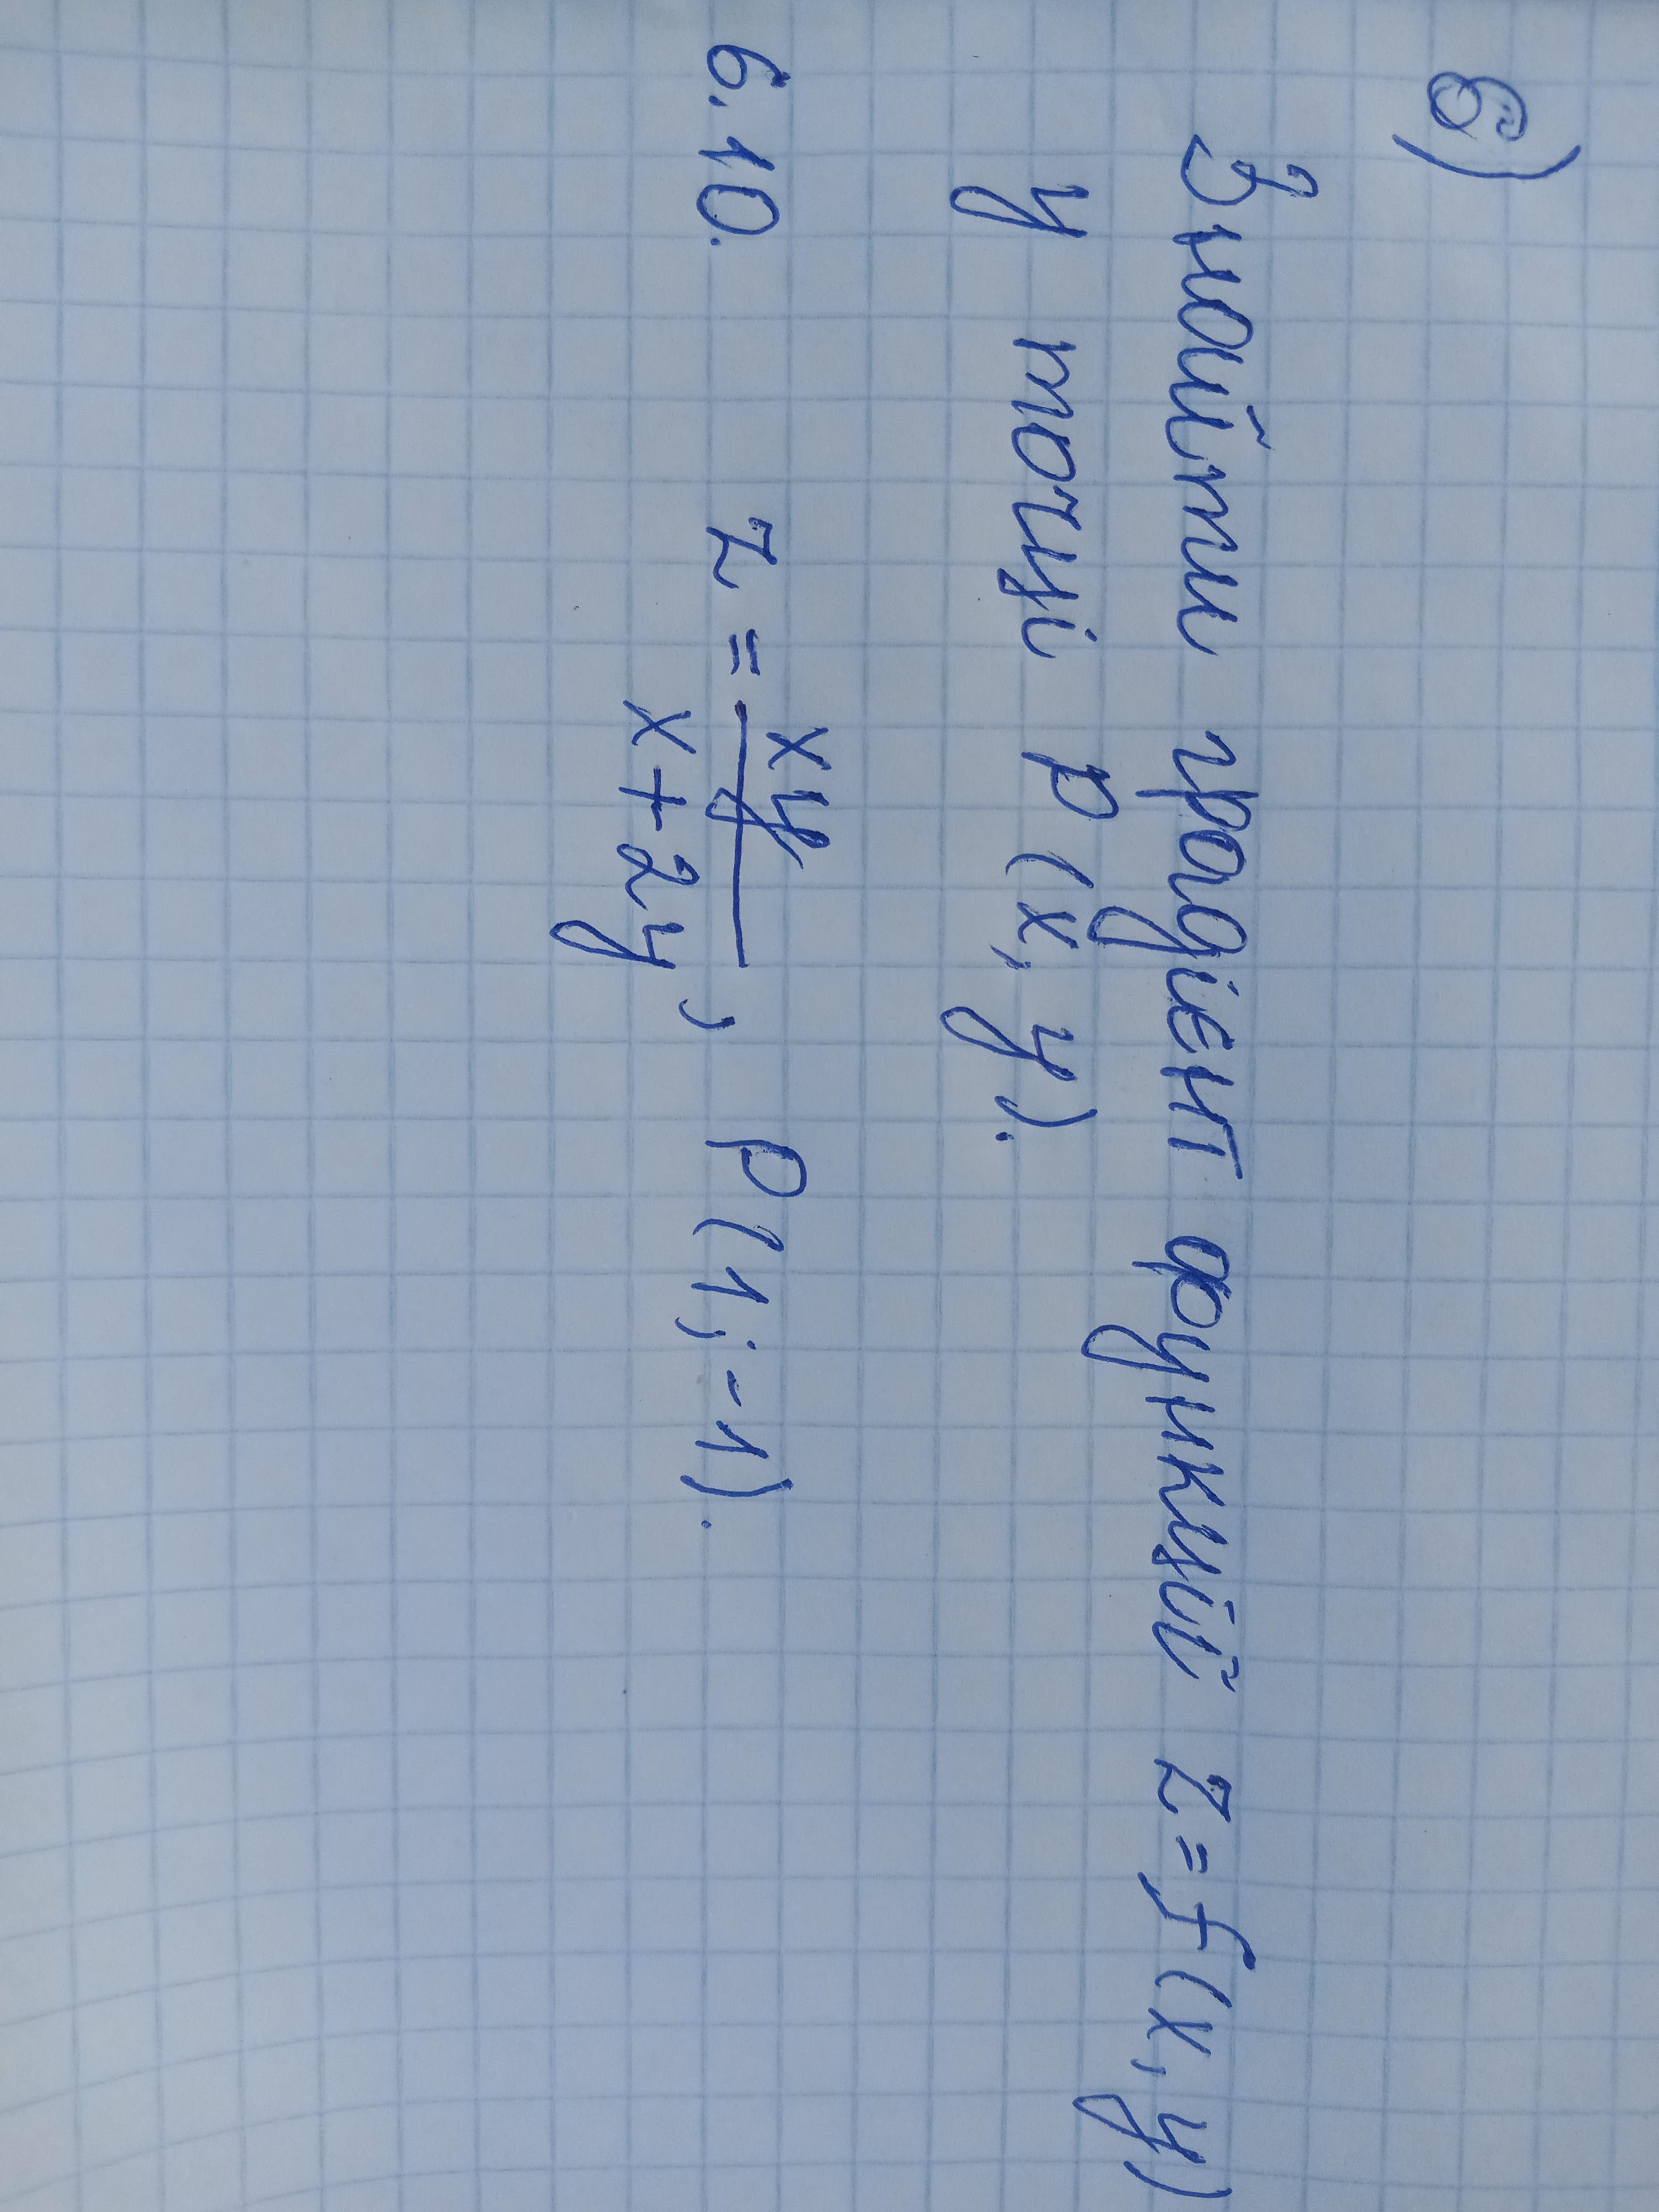 6)
Знайти градієнт функції z=f(x,y)
у точці P(x,y).
6.10. z = xy / x+2y, P(1;-1).